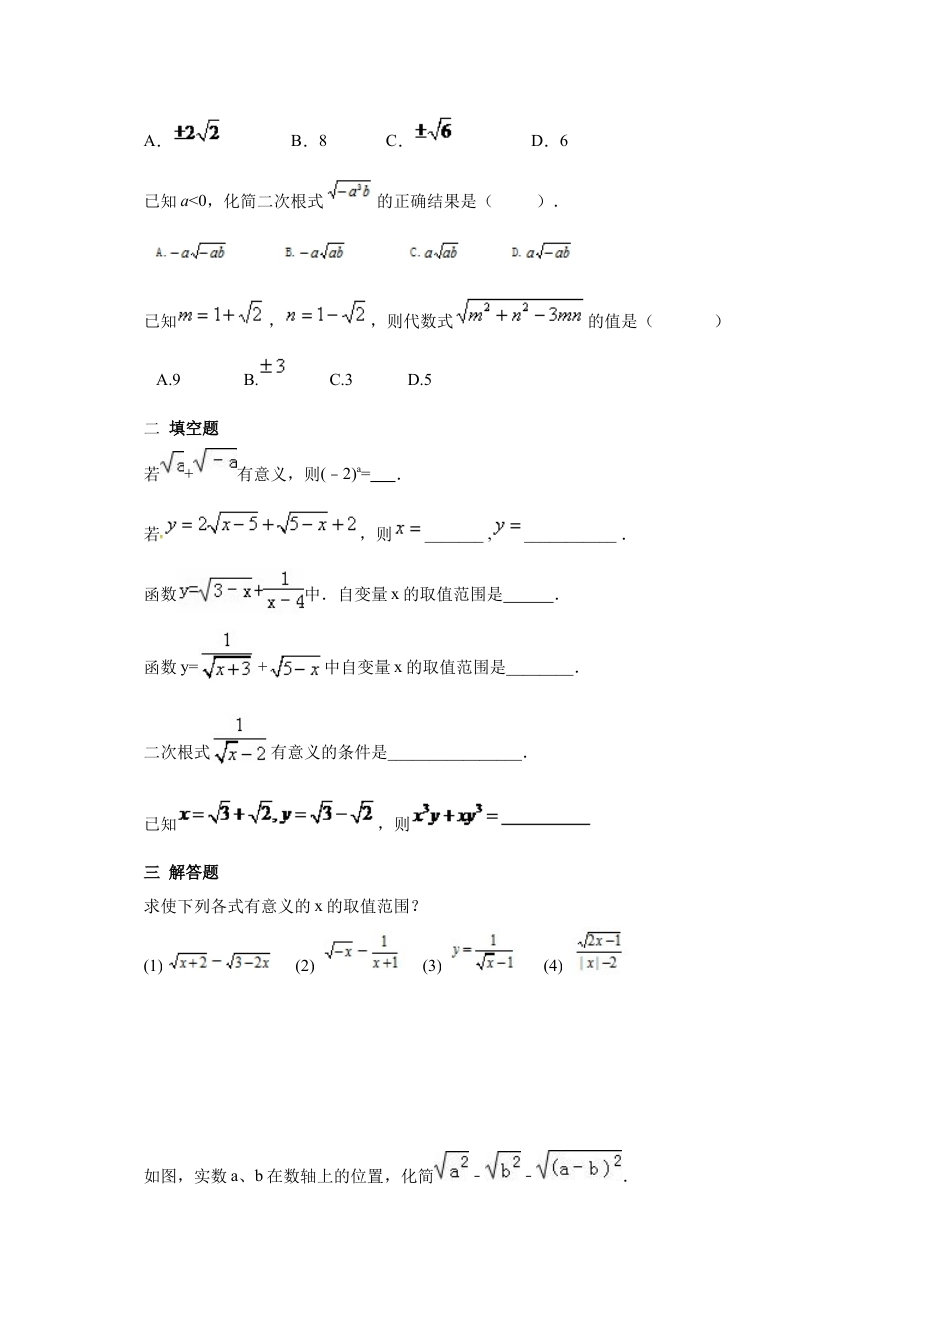 A．±2√2 B．8 C．±√6 D．6
已知 a<0，化简二次根式 √(-a³b) 的正确结果是（ ）.
A. -a√(-ab) B. -a√(ab) C. a√(ab) D. a√(-ab)
已知 m = 1+√2，n = 1-√2，则代数式 √(m²+n²-3mn) 的值是（ ）
A.9 B.±3 C.3 D.5
二 填空题
若√a+√(-a)有意义，则(﹣2)ᵃ=___．
若 y = 2√(x-5)+√(5-x)+2，则 x = _______ , y = ___________ ．
函数y=√(3-x)+1/(x-4)中．自变量 x 的取值范围是______．
函数 y= 1/√(x+3) + √(5-x) 中自变量 x 的取值范围是________．
二次根式 1/(√x-2) 有意义的条件是________________．
已知 x = √3+√2, y = √3-√2，则 x³y+xy³ = __________
三 解答题
求使下列各式有意义的 x 的取值范围？
(1) √(x+2) - √(3-2x) (2) √(-x) - 1/(x+1) (3) y = 1/(√x-1) (4) √(2x-1)/(|x|-2)
如图，实数 a、b 在数轴上的位置，化简√(a²)﹣√(b²)﹣√((a-b)²)．